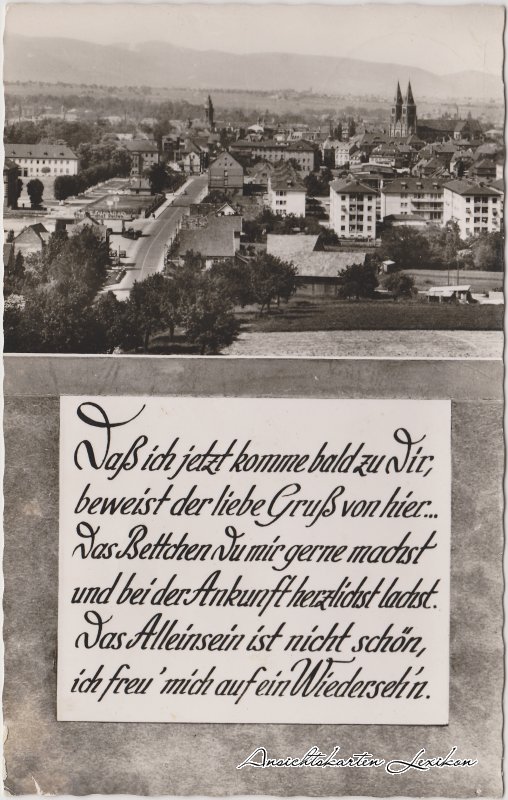 Daß ich jetzt komme bald zu Dir,
beweist der liebe Gruß von hier...
Das Bettchen Du mir gerne machst
und bei der Ankunft herzlichst lachst.
Das Alleinsein ist nicht schön,
ich freu' mich auf ein Wiederseh'n.
Ansichtskarten Lexikon